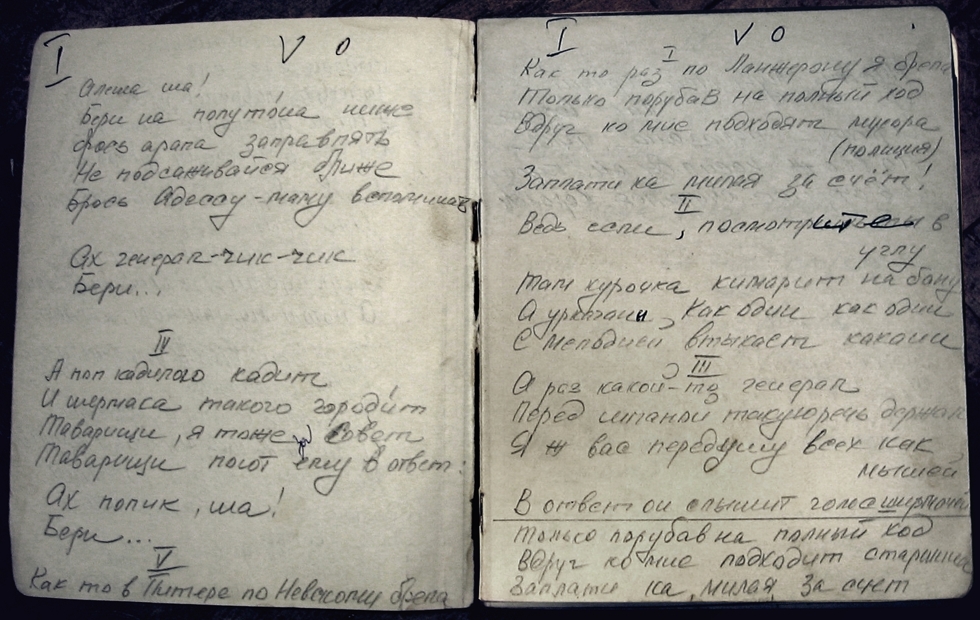 I V O
Алеша ша!
Бери на полутона ниже
брось арапа заправлять
Не подсаживайся ближе
Брось Адессу-маму вспоминать
Ах генерал-чик-чик
Бери...
IV
А поп кадилою кадит
И шермаса такого городит
Таварищи, я тоже за Совет
Таварищи поют ему в ответ:
Ах попик, ша!
Бери...
V
Как то в Питере по Невскому брела
I V O
I
Как то раз по Ланжерону я брела
Только порубав на полный ход
Вдруг ко мне подходят мусора
(полиция)
Заплати ка милая за счёт!
II
Ведь если, посмотрите в
углу
Там курочка кимарит на бану
А уркаган, как один как один
С мелодией втыкает кокаин
III
А раз какой-то генерал
Перед шпаной такую речь держал
Я ж вас передушу всех как
мышей
В ответ он слышит голос ширмачей
Только порубав на полный ход
Вдруг ко мне подходит старшина
Заплати ка, милая за счет